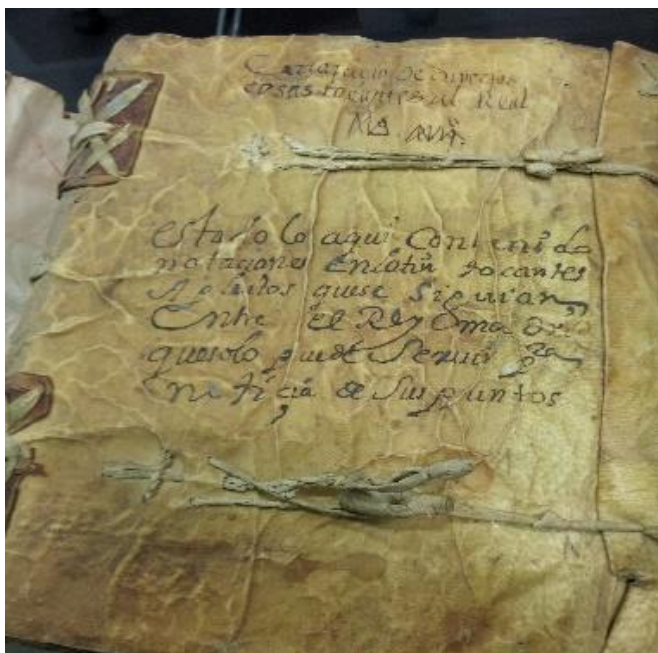 Cartapacio De Diversas
cosas tocantes al Real
estodo lo aqui Conteni do
notaçiones Enlatin tocantes
Apleitos quese Siguian
Entre el Rey
quesolo puede Seruir
noticia de Sus puntos